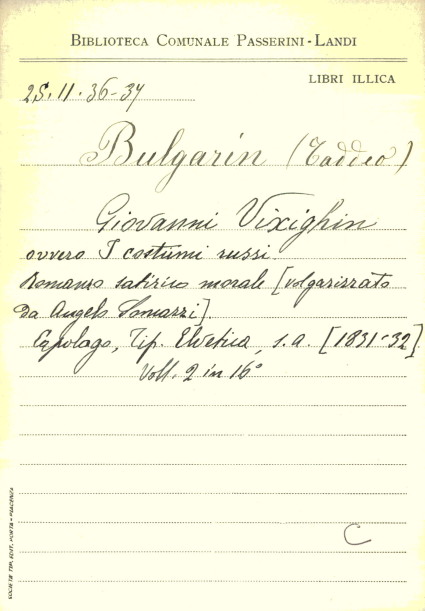 BIBLIOTECA COMUNALE PASSERINI-LANDI
LIBRI ILLICA
2S.11.36-37
Bulgarin (Taddeo)
Giovanni Vixighin
ovvero I costumi russi.
Romanzo satirico morale [volgarizzato
da Angelo Somazzi].
Capolago, Tip. Elvetica, s.a. [1831-32].
Voll. 2 in 16°
C
SOCIETÀ TIP. EDIT. PORTA - PIACENZA